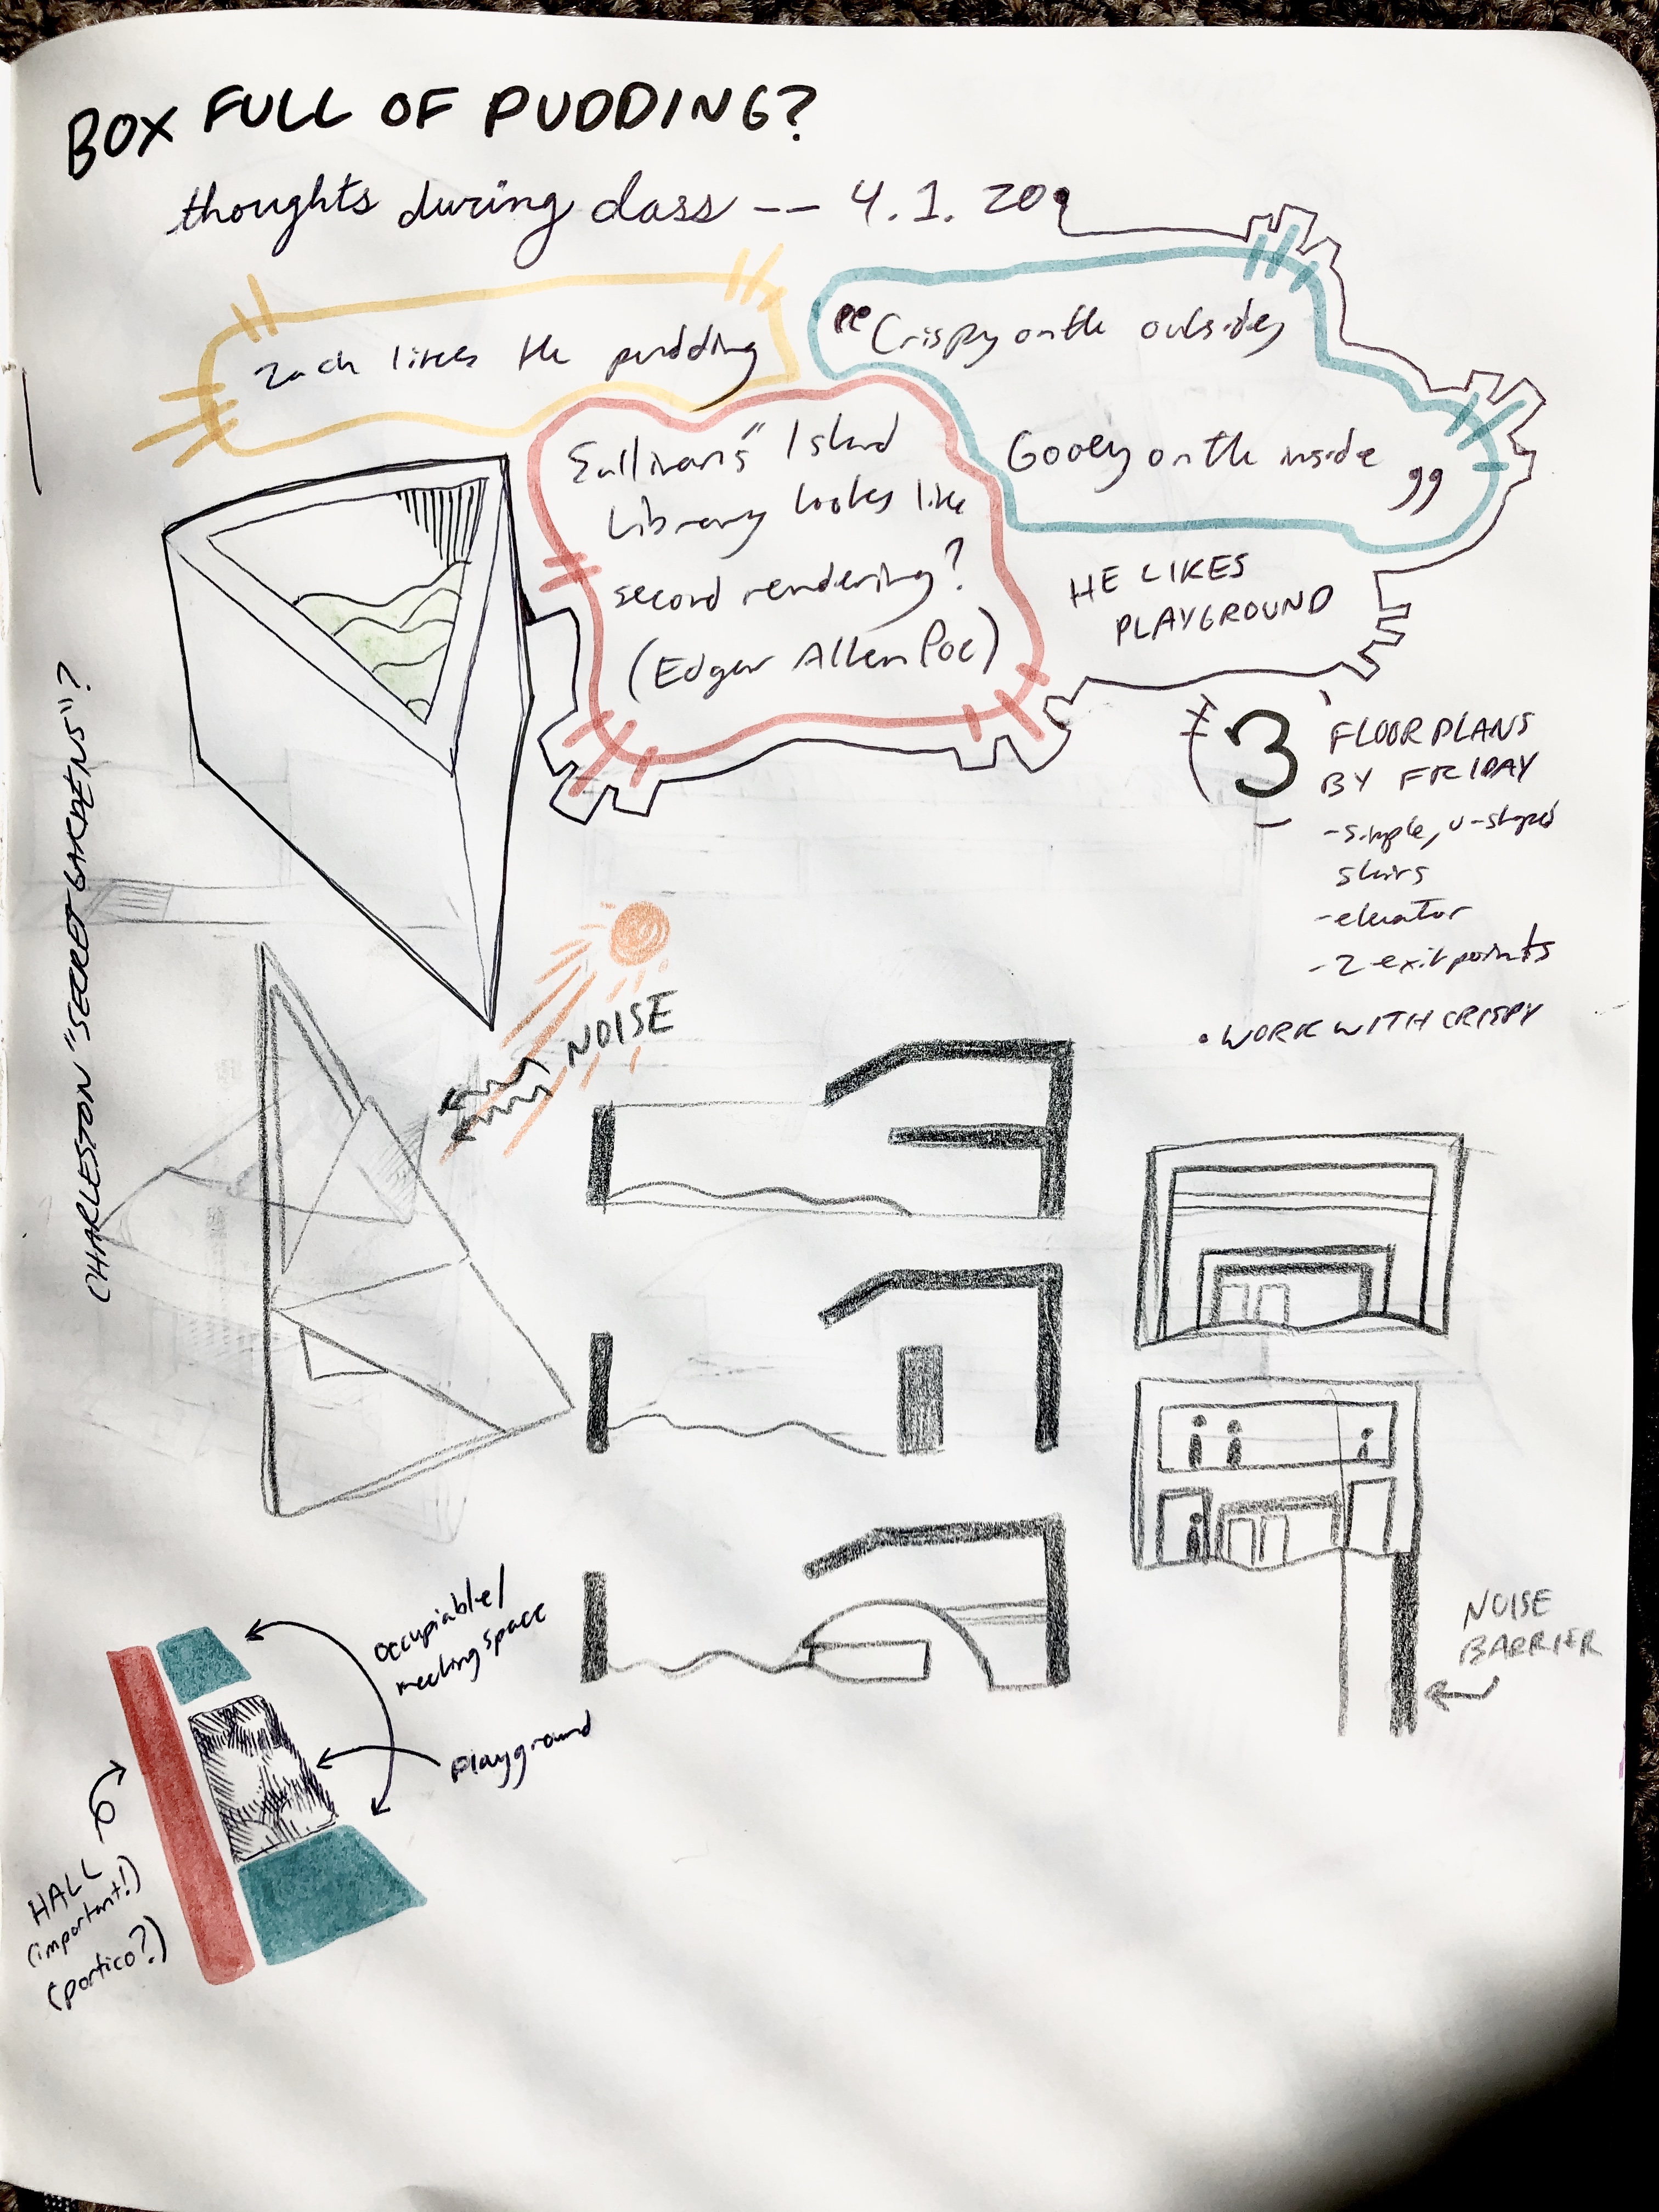 BOX FULL OF PUDDING?
thoughts during class -- 4.1.20
Zach likes the pudding
"Crispy on the outside,
Gooey on the inside"
Sullivan's Island
Library looks like
second rendering?
(Edgar Allen Poe)
HE LIKES
PLAYGROUND
3 FLOOR PLANS
BY FRIDAY
- simple, U-shaped
stairs
- elevator
- 2 exit points
• WORK WITH CRISPY
CHARLESTON "SECRET GARDENS"?
NOISE
NOISE
BARRIER
occupiable/
meeting space
playground
HALL
(important!)
(portico?)